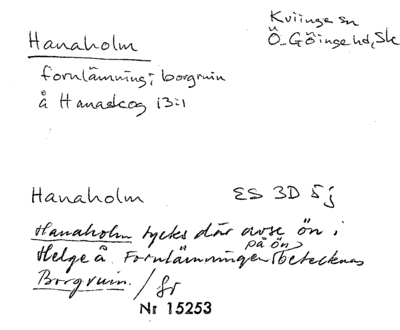 Hanaholm
Kviinge sn
Ö. Göinge hd, Sk
fornlämning; borgruin
å Hanaskog 13:1
Hanaholm ES 3D 5j
Hanaholm tycks där avse ön i
Helge å. Fornlämningen på ön betecknas
Borgruin. /
Nr 15253